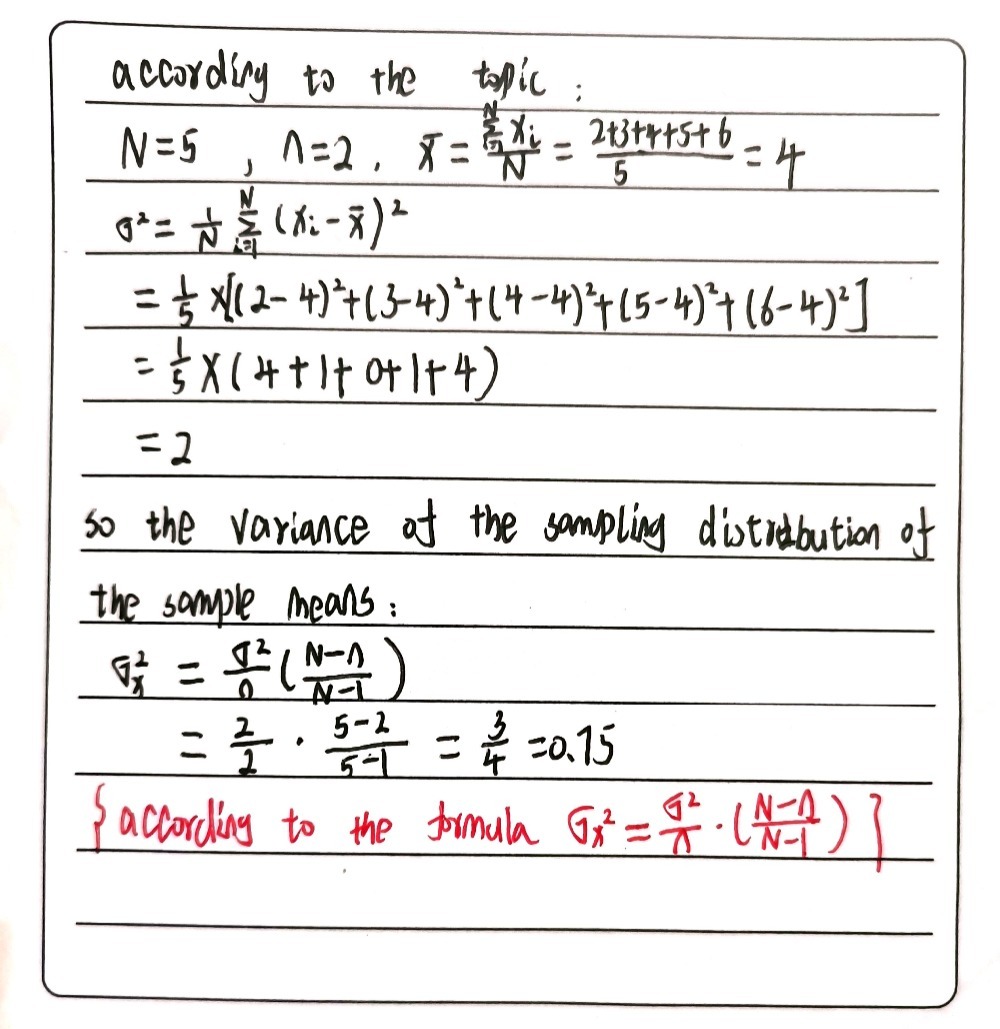 according to the topic :
N=5 , n=2 , x̄ = \frac{\sum_{i=1}^{N} x_i}{N} = \frac{2+3+4+5+6}{5} = 4
σ² = \frac{1}{N} \sum_{i=1}^{N} (x_i - x̄)²
= \frac{1}{5} ×[(2-4)²+(3-4)²+(4-4)²+(5-4)²+(6-4)²]
= \frac{1}{5} × (4+1+0+1+4)
= 2
so the variance of the sampling distribution of
the sample means :
σ_{x̄}² = \frac{σ²}{n} (\frac{N-n}{N-1})
= \frac{2}{2} · \frac{5-2}{5-1} = \frac{3}{4} = 0.75
{according to the formula σ_x² = \frac{σ²}{n} · (\frac{N-n}{N-1})}